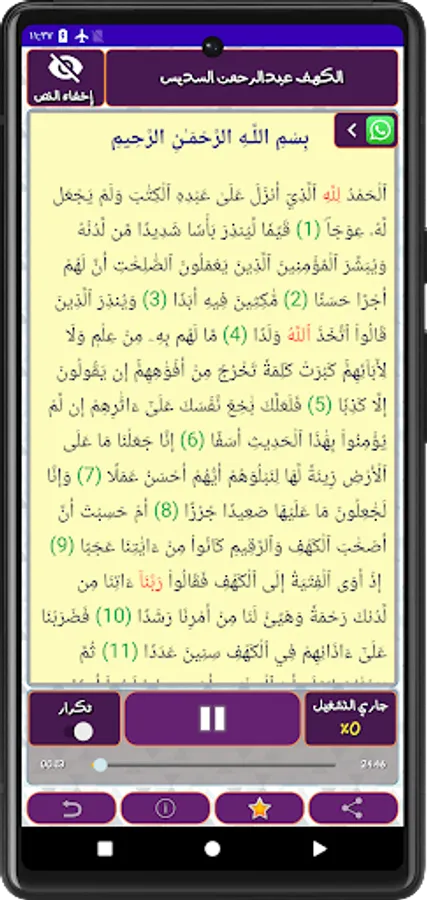 ١١:٣٧
الكهف عبدالرحمن السديس
إخفاء النص
بِسْمِ اللَّهِ الرَّحْمَٰنِ الرَّحِيمِ
ٱلْحَمْدُ لِلَّهِ ٱلَّذِيٓ أَنزَلَ عَلَىٰ عَبْدِهِ ٱلْكِتَٰبَ وَلَمْ يَجْعَل
لَّهُۥ عِوَجَاۜ (1) قَيِّمٗا لِّيُنذِرَ بَأْسٗا شَدِيدٗا مِّن لَّدُنْهُ
وَيُبَشِّرَ ٱلْمُؤْمِنِينَ ٱلَّذِينَ يَعْمَلُونَ ٱلصَّٰلِحَٰتِ أَنَّ لَهُمْ
أَجْرًا حَسَنٗا (2) مَّٰكِثِينَ فِيهِ أَبَدٗا (3) وَيُنذِرَ ٱلَّذِينَ
قَالُواْ ٱتَّخَذَ ٱللَّهُ وَلَدٗا (4) مَّا لَهُم بِهِۦ مِنْ عِلْمٖ وَلَا
لِأٓبَآئِهِمْۚ كَبُرَتْ كَلِمَةٗ تَخْرُجُ مِنْ أَفْوَٰهِهِمْۚ إِن يَقُولُونَ
إِلَّا كَذِبٗا (5) فَلَعَلَّكَ بَٰخِعٞ نَّفْسَكَ عَلَىٰٓ ءَاثَٰرِهِمْ إِن لَّمْ
يُؤْمِنُواْ بِهَٰذَا ٱلْحَدِيثِ أَسَفًا (6) إِنَّا جَعَلْنَا مَا عَلَى
ٱلْأَرْضِ زِينَةٗ لَّهَا لِنَبْلُوَهُمْ أَيُّهُمْ أَحْسَنُ عَمَلٗا (7) وَإِنَّا
لَجَٰعِلُونَ مَا عَلَيْهَا صَعِيدٗا جُرُزًا (8) أَمْ حَسِبْتَ أَنَّ
أَصْحَٰبَ ٱلْكَهْفِ وَٱلرَّقِيمِ كَانُواْ مِنْ ءَايَٰتِنَا عَجَبًا (9)
إِذْ أَوَى ٱلْفِتْيَةُ إِلَى ٱلْكَهْفِ فَقَالُواْ رَبَّنَآ ءَاتِنَا مِن
لَّدُنكَ رَحْمَةٗ وَهَيِّئْ لَنَا مِنْ أَمْرِنَا رَشَدٗا (10) فَضَرَبْنَا
عَلَىٰٓ ءَاذَانِهِمْ فِي ٱلْكَهْفِ سِنِينَ عَدَدٗا (11) ثُمَّ
جاري التشغيل
%0
تكرار
24:46